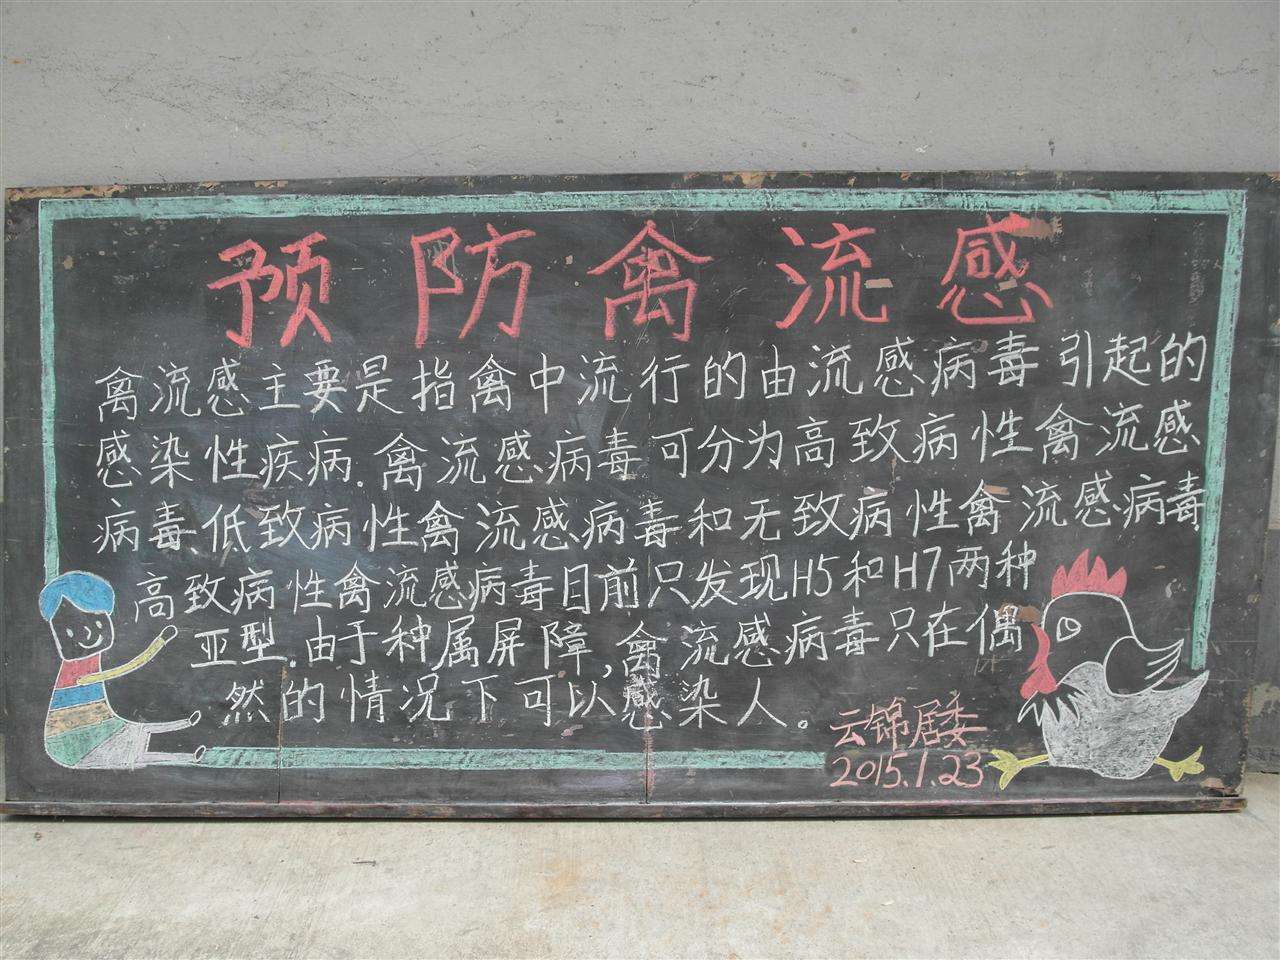 预防禽流感
禽流感主要是指禽中流行的由流感病毒引起的
感染性疾病.禽流感病毒可分为高致病性禽流感
病毒、低致病性禽流感病毒和无致病性禽流感病毒.
高致病性禽流感病毒目前只发现H5和H7两种
亚型.由于种属屏障,禽流感病毒只在偶
然的情况下可以感染人。
云锦居委
2015.1.23